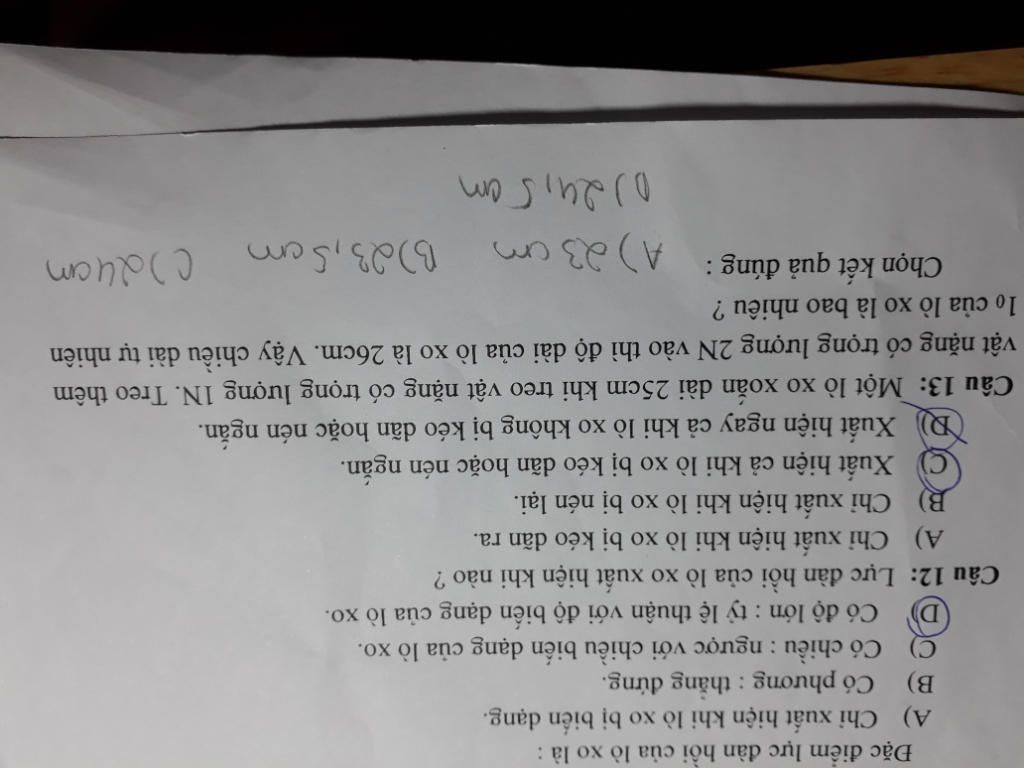 Đặc điểm lực đàn hồi của lò xo là :
A) Chỉ xuất hiện khi lò xo bị biến dạng.
B) Có phương : thẳng đứng.
C) Có chiều : ngược với chiều biến dạng của lò xo.
D) Có độ lớn : tỷ lệ thuận với độ biến dạng của lò xo.
Câu 12: Lực đàn hồi của lò xo xuất hiện khi nào ?
A) Chỉ xuất hiện khi lò xo bị kéo dãn ra.
B) Chỉ xuất hiện khi lò xo bị nén lại.
C) Xuất hiện cả khi lò xo bị kéo dãn hoặc nén ngắn.
D) Xuất hiện ngay cả khi lò xo không bị kéo dãn hoặc nén ngắn.
Câu 13: Một lò xo xoắn dài 25cm khi treo vật nặng có trọng lượng 1N. Treo thêm
vật nặng có trọng lượng 2N vào thì độ dài của lò xo là 26cm. Vậy chiều dài tự nhiên
l₀ của lò xo là bao nhiêu ?
Chọn kết quả đúng : A) 23 cm B) 23,5 cm C) 24 cm
D) 24,5 cm